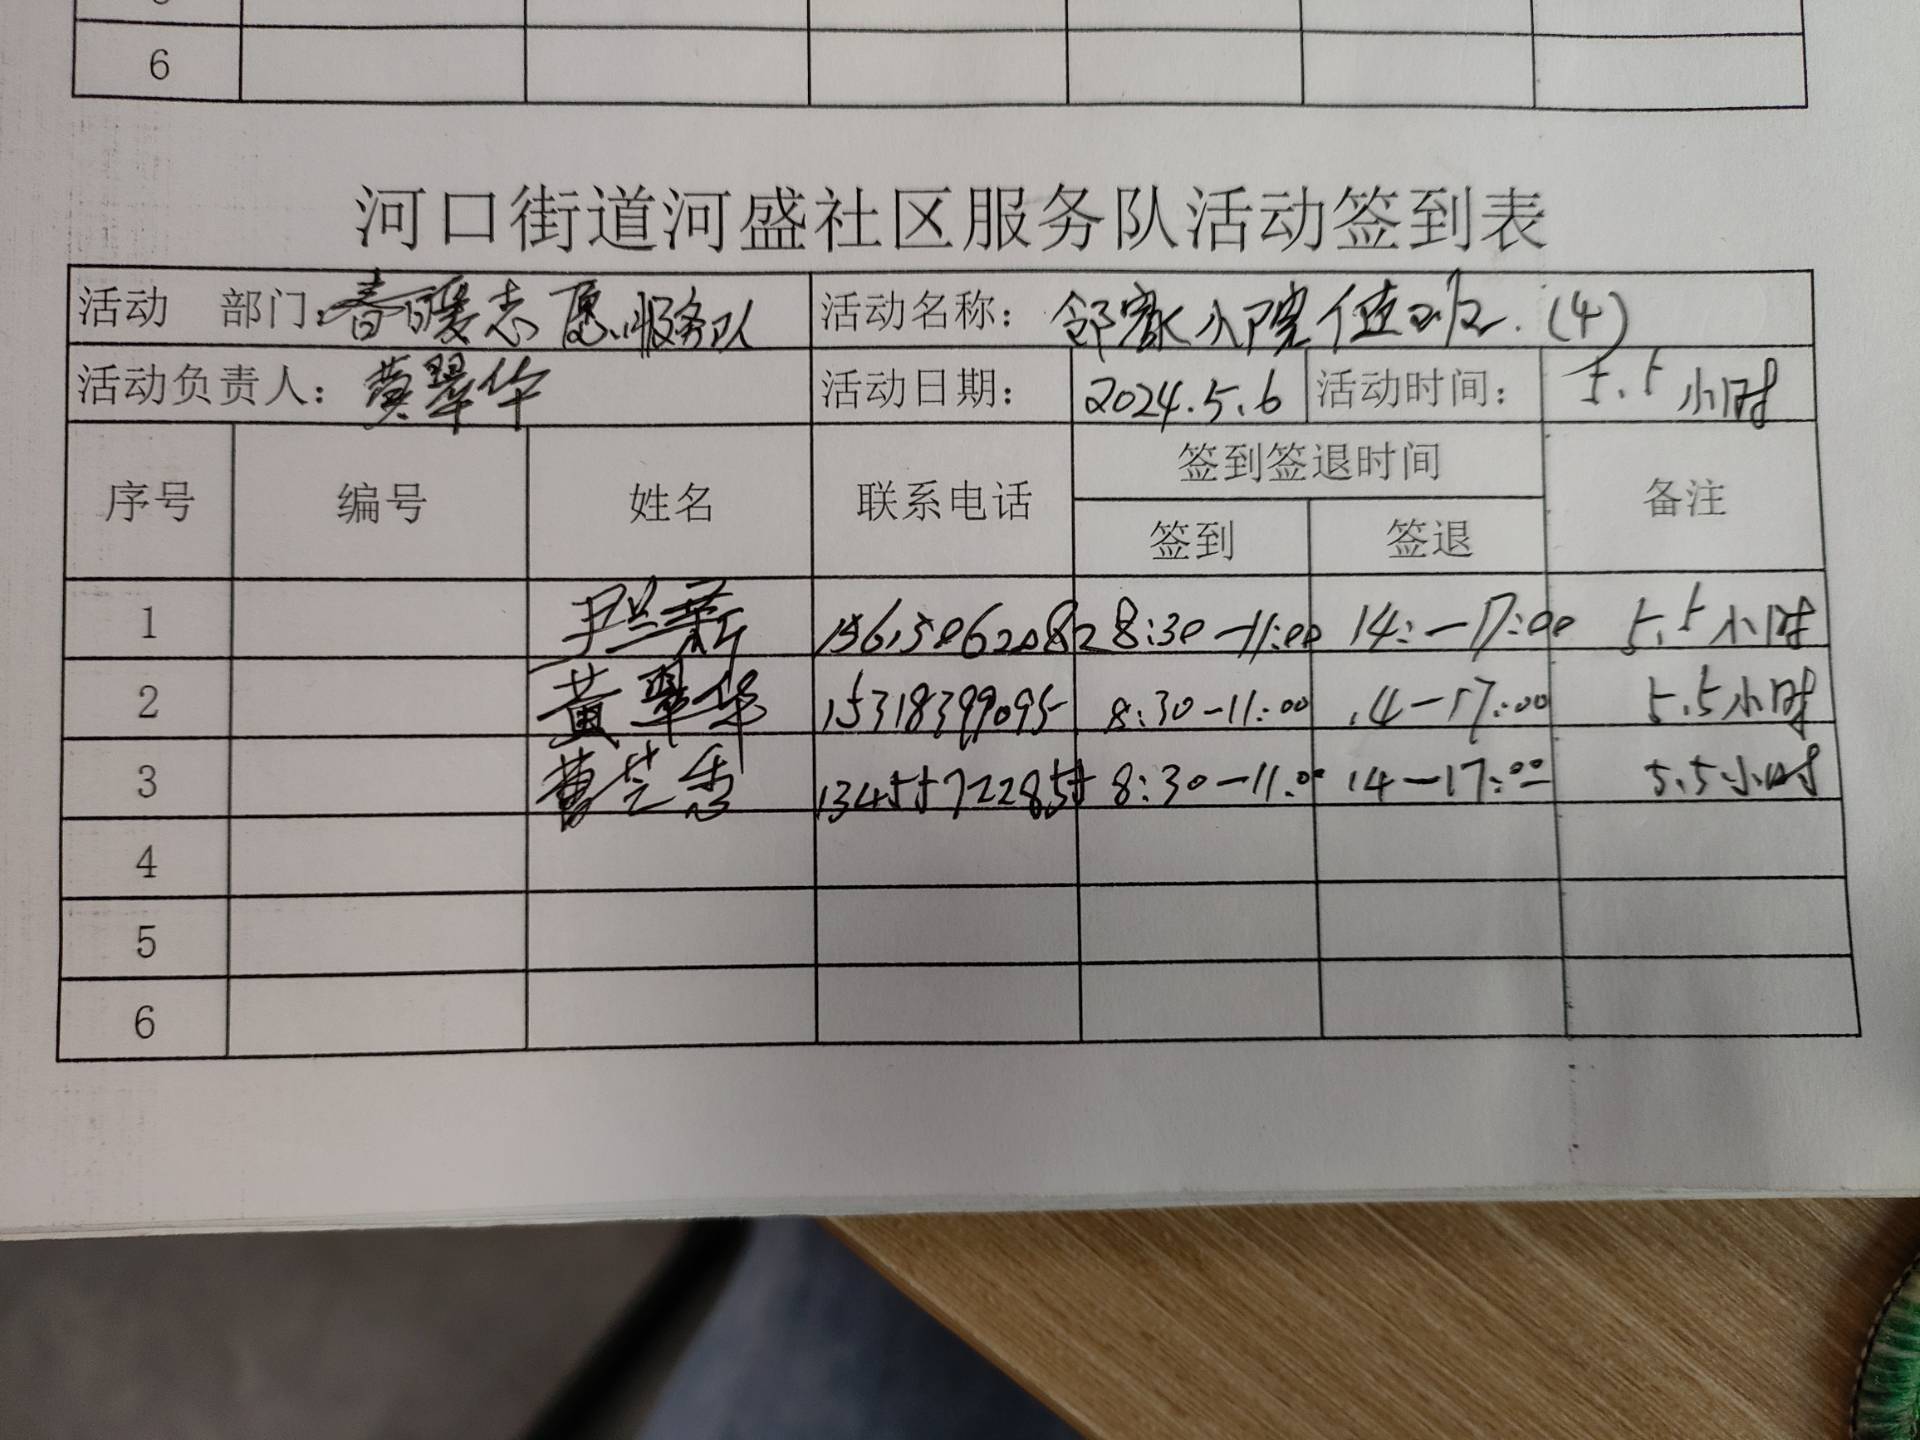 6
河口街道河盛社区服务队活动签到表
活动 部门：春暖志愿服务队 活动名称：邻家小院值班.(4)
活动负责人：黄翠华 活动日期：2024.5.6 活动时间：5.5小时
序号 编号 姓名 联系电话 签到签退时间 备注
签到 签退
1 尹兰新 15615062082 8:30-11:00 14:-17:00 5.5小时
2 黄翠华 15318399095 8:30-11:00 14-17:00 5.5小时
3 曹芝香 13455722855 8:30-11:00 14-17:00 5.5小时
4
5
6